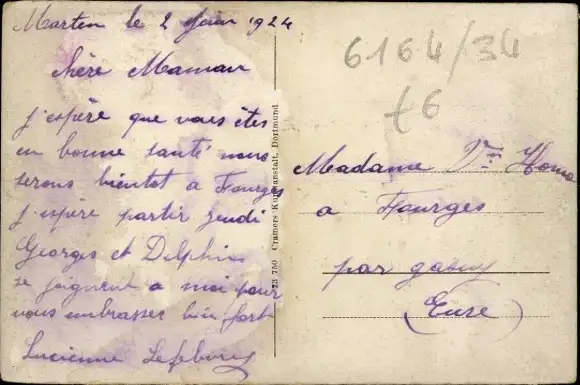 Marten le 2 Juin 1924
chère Maman
j'espère que vous êtes
en bonne santé nous
serons bientot a Fourges
j'espère partir jeudi
Georges et Delphine
se joignent a moi pour
vous embrasser bien fort
Lucienne Lefebvre
23 750 Cramers Kunstanstalt, Dortmund
6164/34
£6
Madame Vve
a Fourges
par gasny
(Eure)